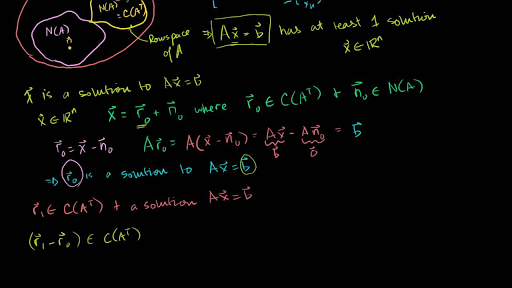 N(A)⊥
= C(Aᵀ)
N(A)
Rowspace
of A
⇒ Ax⃗ = b⃗ has at least 1 solution
x⃗ ∈ ℝⁿ
x⃗ is a solution to Ax⃗ = b⃗
x⃗ ∈ ℝⁿ x⃗ = r⃗₀ + n⃗₀ where r⃗₀ ∈ C(Aᵀ) + n⃗₀ ∈ N(A)
r⃗₀ = x⃗ - n⃗₀ Ar⃗₀ = A(x⃗ - n⃗₀) = Ax⃗ - An⃗₀ = b⃗
b⃗ 0⃗
⇒ r⃗₀ is a solution to Ax⃗ = b⃗
r⃗₁ ∈ C(Aᵀ) + a solution Ax⃗ = b⃗
(r⃗₁ - r⃗₀) ∈ C(Aᵀ)